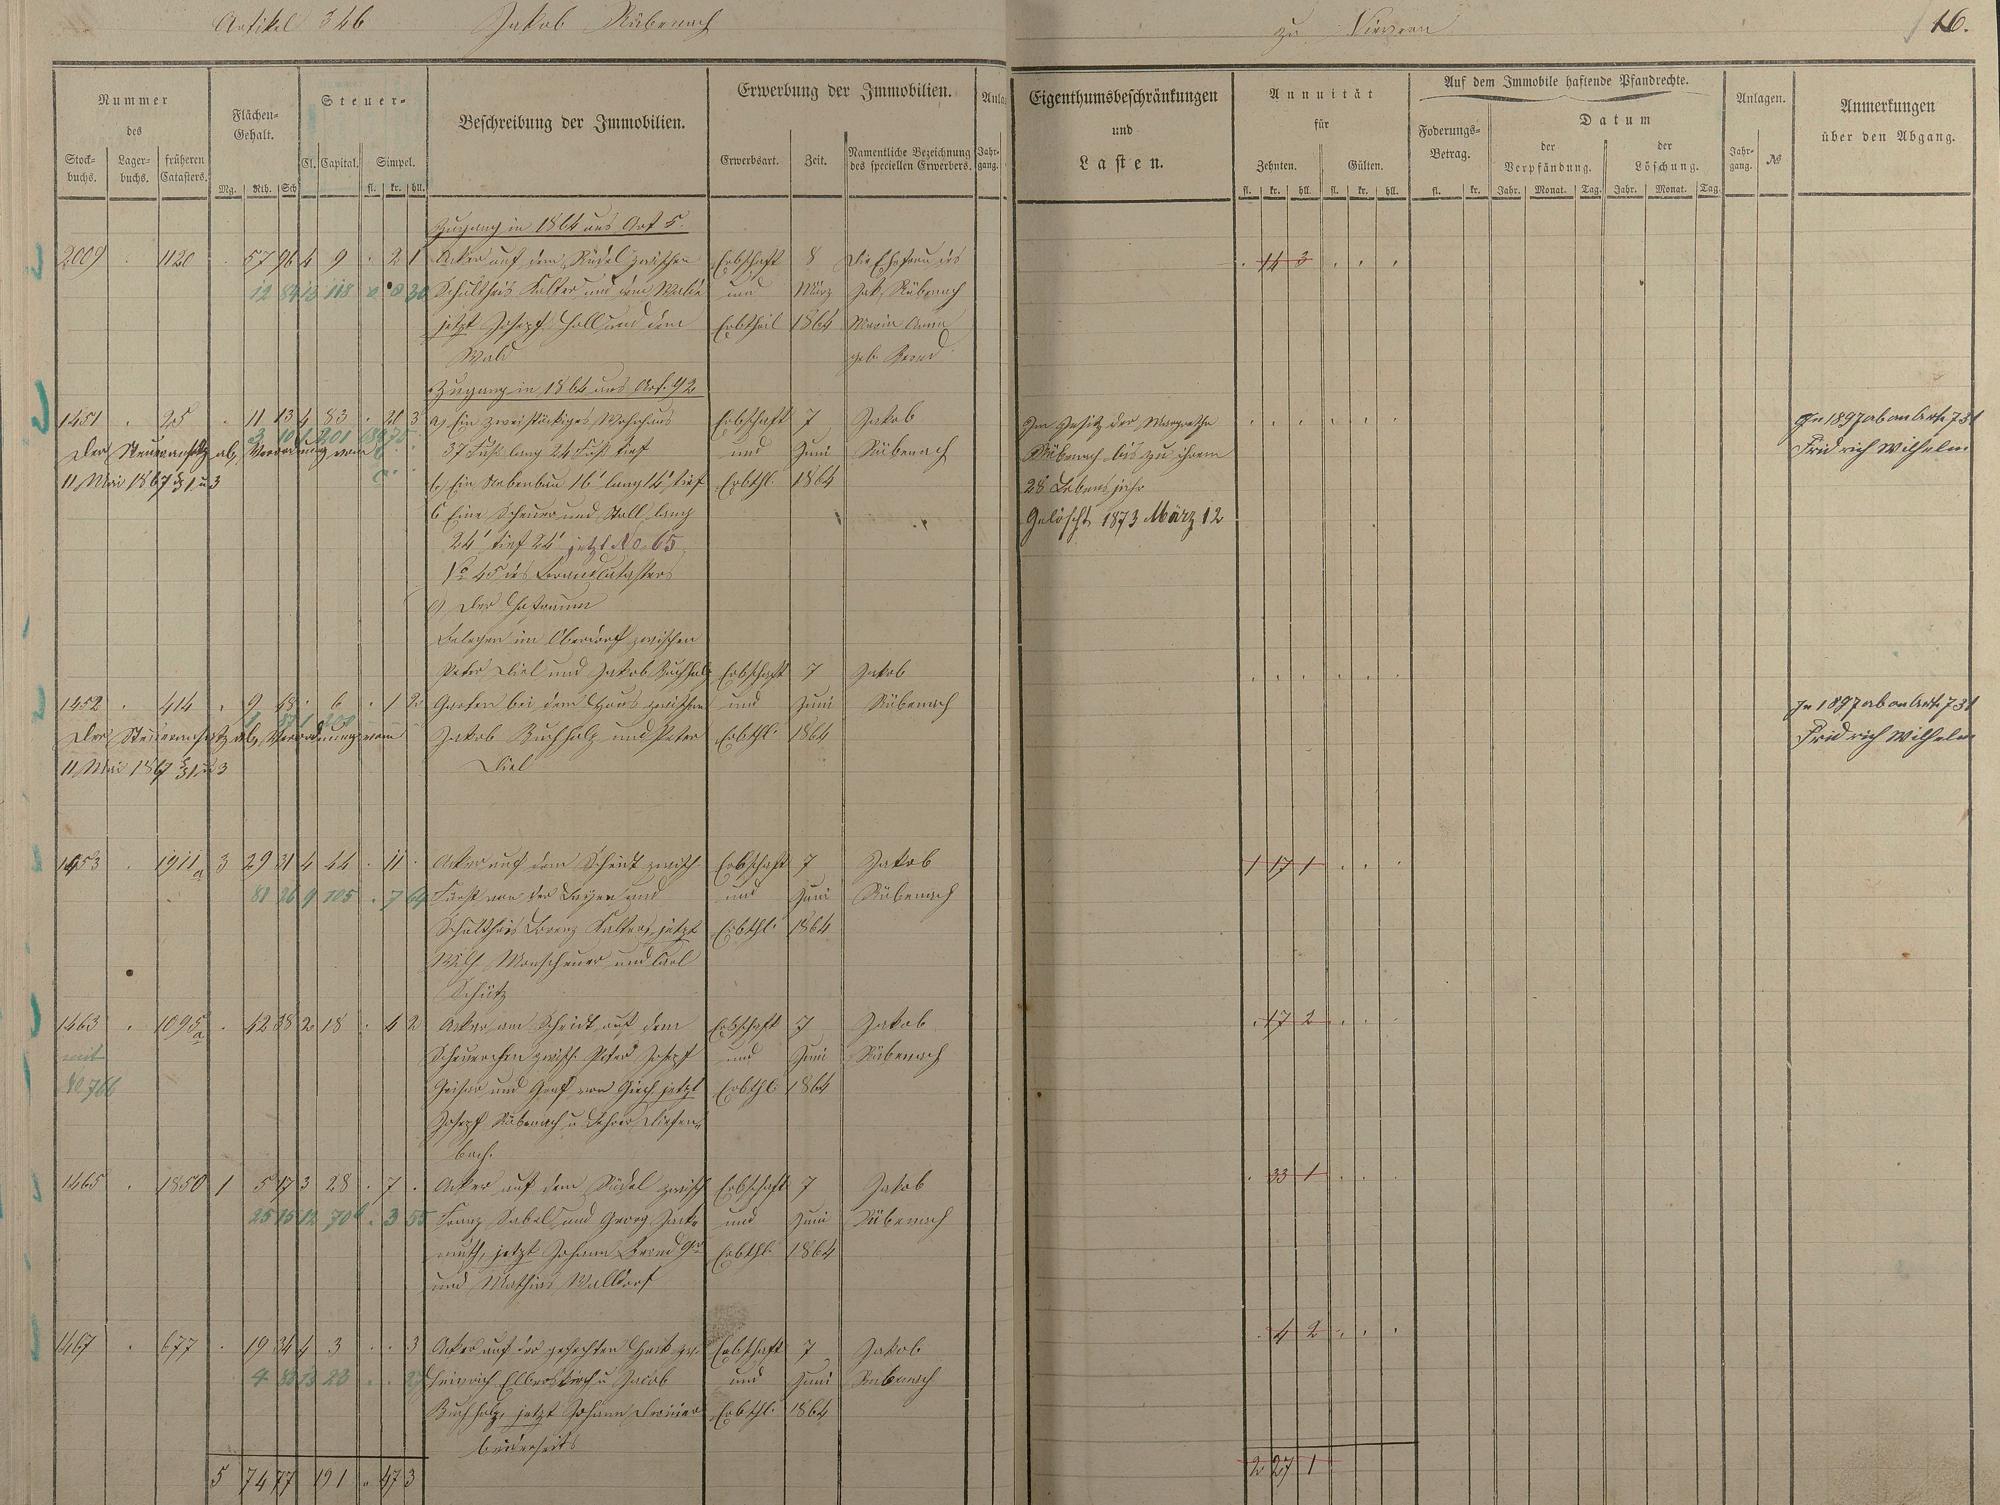 Artikel 346 Jakob Rübenach zu 16.
Nummer des
Stockbuchs. Lagerbuchs. früheren Catasters.
Flächen-Gehalt.
Mg. Rth. Sch
Steuer-
Cl. Capital. Simpel.
fl. kr. hll.
Beschreibung der Immobilien.
Erwerbung der Immobilien.
Erwerbsart. Zeit. Namentliche Bezeichnung des speciellen Erwerbers.
Anla
Jahrgang.
Eigenthumsbeschränkungen und Lasten.
Annuität für
Zehnten. Gülten.
fl. kr. hll. fl. kr. hll.
Auf dem Immobile haftende Pfandrechte.
Foderungs-Betrag.
fl. kr.
Datum
der Verpfändung. der Löschung.
Jahr. Monat. Tag. Jahr. Monat. Tag.
Anlagen.
Jahrgang. №
Anmerkungen über den Abgang.
Zugang in 1864 aus Art 5.
2009 . 1120 . 57 96 4 9 . 2 1 Acker auf dem Rüdel zwischen Erbschaft 8 Die Ehefrau des . 14 3 . . .
12 84 13 118 Schultheis Kalter und dem Walde und März Jak. Rübenach
jetzt Josepf Holl und dem Erbtheil 1864 Maria Anna
Wald geb.
Zugang in 1864 aus Art. 92
1451 . 25 . 11 13 4 83 . 20 3 a, Ein zweistöckiges Wohnhaus Erbschaft 7 Jakob Im Besitz der Margretha . . . . . . In 1897 ab an Art. 731
Der Steueransatz ab, Verordnung vom 37 Fuß lang 24 Fuß tief und Juni Rübenach Rübenach bis zu ihrem Fridrich Wilhelm
11 Mai 1867 § 1 u 3 b, Ein Nebenbau 16' lang 14' tief Erbthl. 1864 28 Lebensjahr
c Eine Scheuer und Stall lang Gelöscht 1873 März 12
24' tief 24' jetzt No 65
No 45 des Brandcatasters
d, Der Hofraum
Belegen im Oberdorf zwischen
Peter Diel und Jakob Buchholz Erbschaft 7 Jakob . . . . . .
1452 . 414 . 9 48 . 6 . 1 2 Garten bei dem Haus zwischen und Juni Rübenach In 1897 ab an Art. 731
Der Steueransatz ab, Verordnung vom Jakob Buchholz und Peter Erbthl. 1864 Fridrich Wilhelm
11 Mai 1867 § 1 u 3 Diel
1453 . 1911a 3 29 31 4 44 . 11 . Acker auf dem Scheidt zwisch Erbschaft 7 Jakob 1 17 1 . . .
81 26 9 105 . 7 64 Fürst von der Leyen und und Juni Rübenach
Schultheis Lorenz Kalter, jetzt Erbthl. 1864
Wilh. Monscheuer und Carl
Schütz
1463 . 1095a . 42 38 2 18 . 4 2 Acker am Scheidt auf dem Erbschaft 7 Jakob . 17 2 . . .
mit Scheuerchen zwisch. Peter Josepf und Juni Rübenach
No 766 und Graf von jetzt Erbthl. 1864
Josepf Rübenach u Lehrer Diefen-
bach.
1465 . 1850 1 5 17 3 28 . 7 . Acker auf dem Rüdel zwisch Erbschaft 7 Jakob . 33 1 . . .
25 15 12 70 . 3 55 Franz Sabel und Georg und Juni Rübenach
jetzt Johann Erbthl. 1864
und Mathias Walldorf
1467 . 677 . 19 34 4 3 . . 3 Acker auf der Erbschaft 7 Jakob . 4 2 . . .
4 83 13 23 . . Heinrich Elberskirch u Jacob und Juni Rübenach
Buchholz, jetzt Johann Erbthl. 1864
beiderseits
5 74 77 191 . 47 3 2 27 1